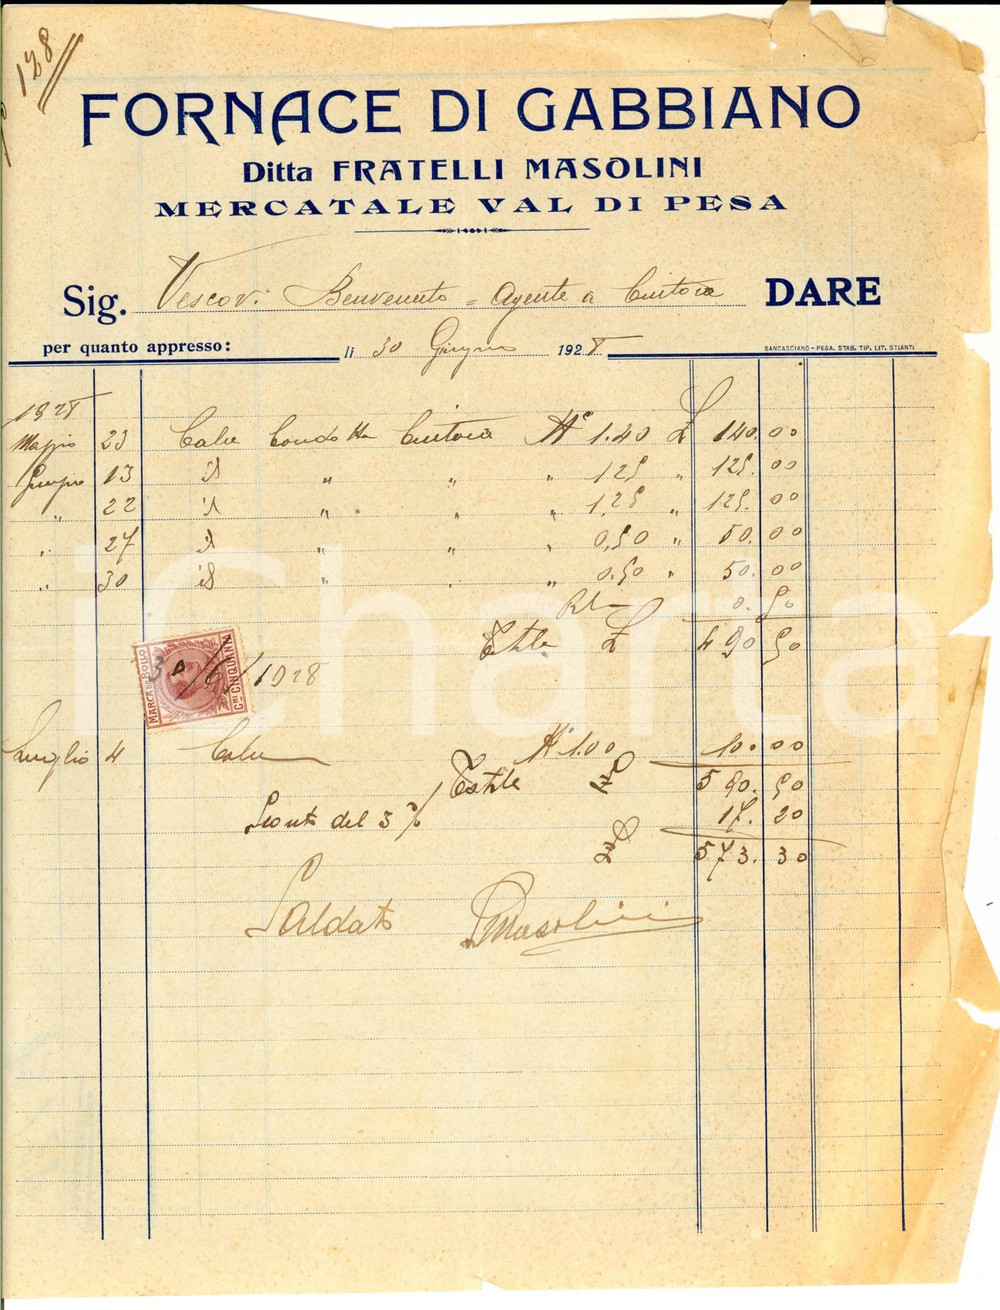 128
FORNACE DI GABBIANO
Ditta FRATELLI MASOLINI
MERCATALE VAL DI PESA
Sig. Vescovi Benvenuto = Agente a DARE
per quanto appresso: li 30 Giugno 1928
SANCASCIANO - PESA. STAB. TIP. LIT. STIANTI
1928
Maggio 23 Calce Condotta 1.40 £ 140.00
Giugno 13 id " " " 1.25 " 125.00
" 22 id " " " 1.25 " 125.00
" 27 id " " 0,50 " 50.00
" 30 id " " 0.50 " 50.00
0.50
Totale £ 490.50
MARCA DA BOLLO
C.MI CINQUANTA
30/6/1928
Luglio 4 Calce 1.00 10.00
Totale 590.50
Sconto del 3% 17.20
573.30
Saldato Masolini
iCharta